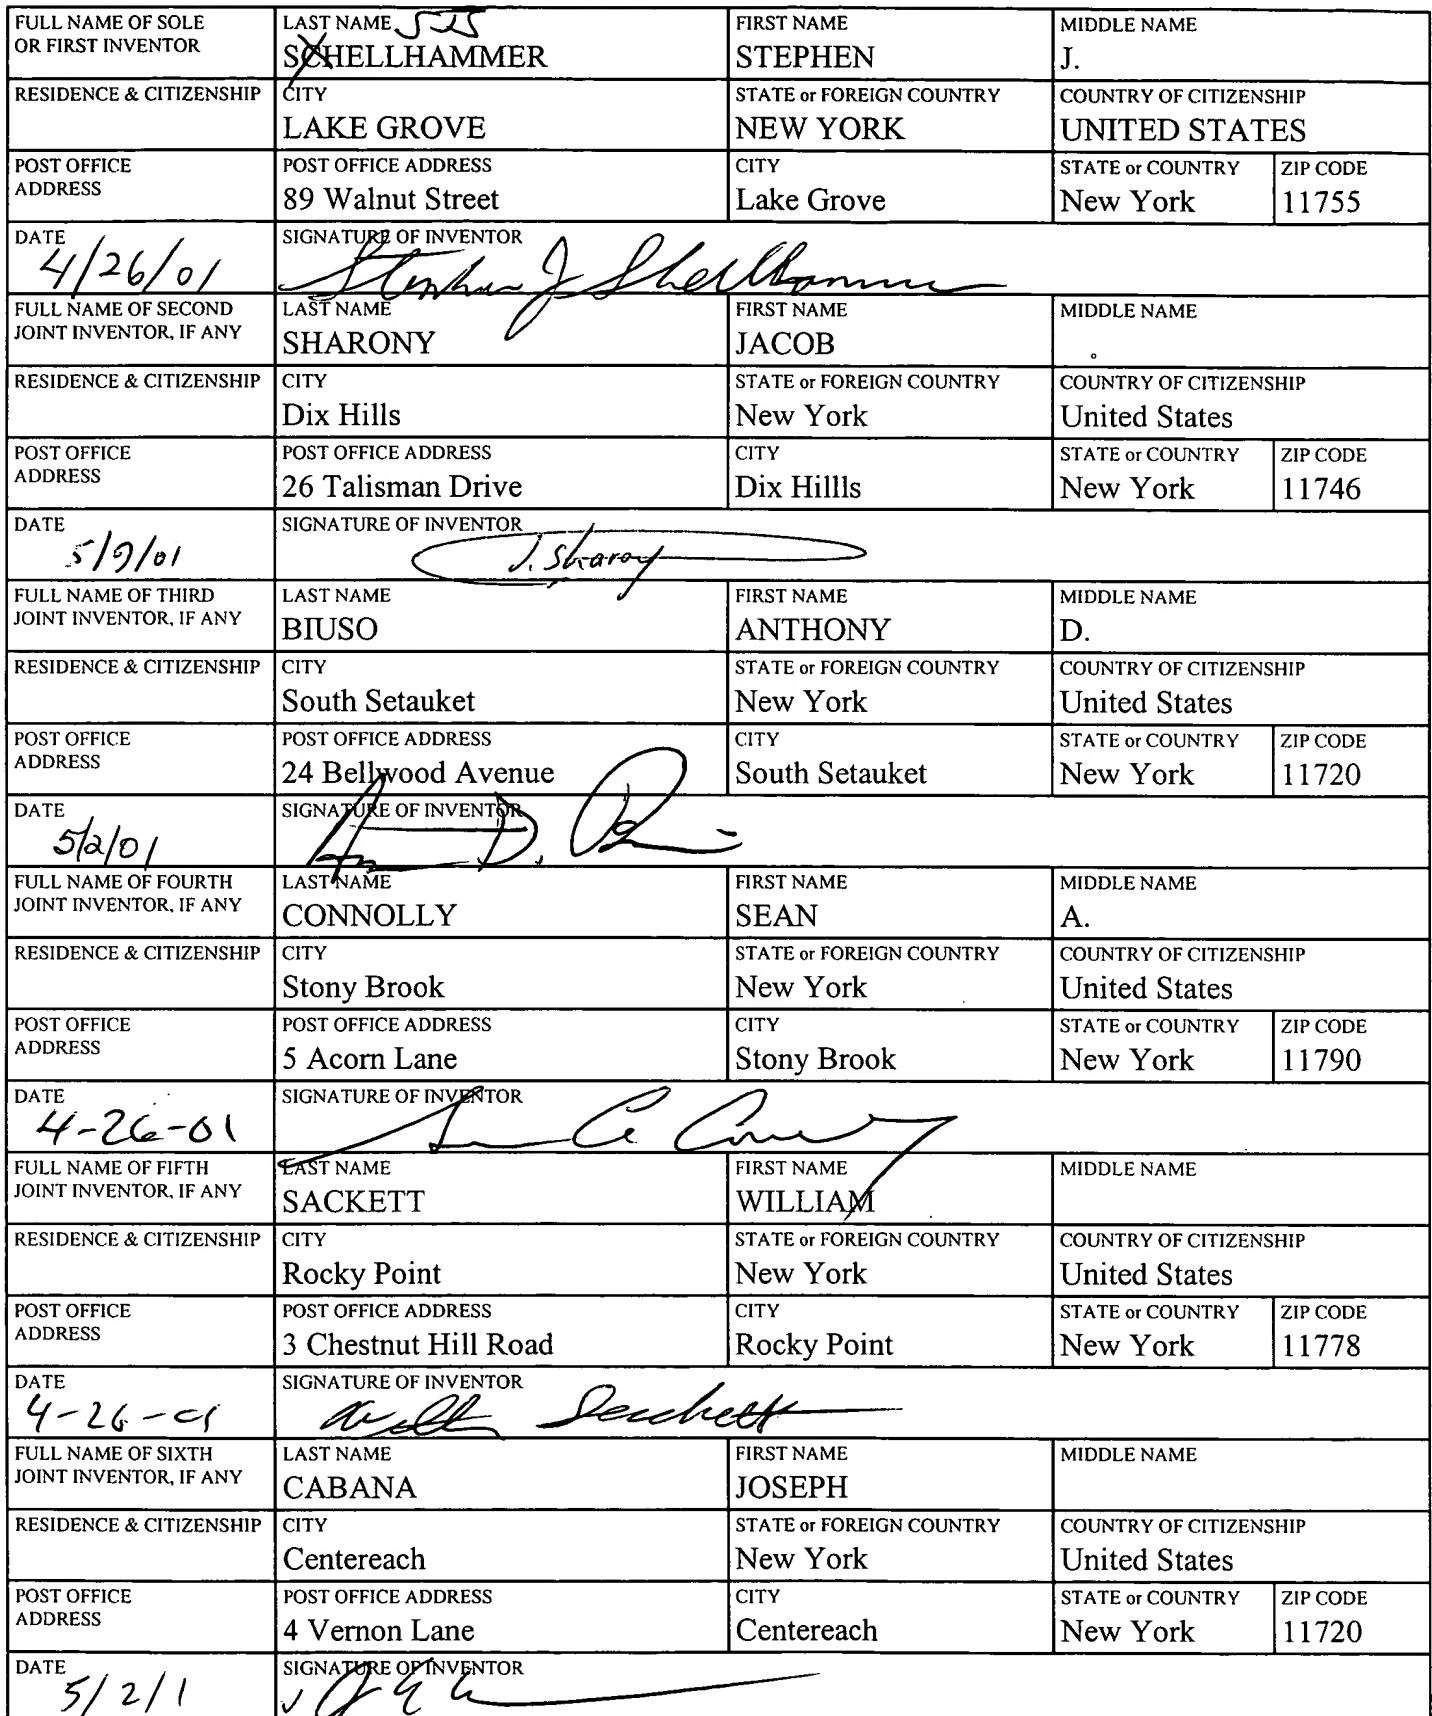 FULL NAME OF SOLE OR FIRST INVENTOR
LAST NAME SJS
SCHELLHAMMER
FIRST NAME
STEPHEN
MIDDLE NAME
J.
RESIDENCE & CITIZENSHIP
CITY
LAKE GROVE
STATE or FOREIGN COUNTRY
NEW YORK
COUNTRY OF CITIZENSHIP
UNITED STATES
POST OFFICE
ADDRESS
POST OFFICE ADDRESS
89 Walnut Street
CITY
Lake Grove
STATE or COUNTRY
New York
ZIP CODE
11755
DATE
4/26/01
SIGNATURE OF INVENTOR
Stephen J Shellhammer
FULL NAME OF SECOND
JOINT INVENTOR, IF ANY
LAST NAME
SHARONY
FIRST NAME
JACOB
MIDDLE NAME
RESIDENCE & CITIZENSHIP
CITY
Dix Hills
STATE or FOREIGN COUNTRY
New York
COUNTRY OF CITIZENSHIP
United States
POST OFFICE
ADDRESS
POST OFFICE ADDRESS
26 Talisman Drive
CITY
Dix Hillls
STATE or COUNTRY
New York
ZIP CODE
11746
DATE
5/9/01
SIGNATURE OF INVENTOR
J. Sharony
FULL NAME OF THIRD
JOINT INVENTOR, IF ANY
LAST NAME
BIUSO
FIRST NAME
ANTHONY
MIDDLE NAME
D.
RESIDENCE & CITIZENSHIP
CITY
South Setauket
STATE or FOREIGN COUNTRY
New York
COUNTRY OF CITIZENSHIP
United States
POST OFFICE
ADDRESS
POST OFFICE ADDRESS
24 Bellwood Avenue
CITY
South Setauket
STATE or COUNTRY
New York
ZIP CODE
11720
DATE
5/2/01
SIGNATURE OF INVENTOR
D.
FULL NAME OF FOURTH
JOINT INVENTOR, IF ANY
LAST NAME
CONNOLLY
FIRST NAME
SEAN
MIDDLE NAME
A.
RESIDENCE & CITIZENSHIP
CITY
Stony Brook
STATE or FOREIGN COUNTRY
New York
COUNTRY OF CITIZENSHIP
United States
POST OFFICE
ADDRESS
POST OFFICE ADDRESS
5 Acorn Lane
CITY
Stony Brook
STATE or COUNTRY
New York
ZIP CODE
11790
DATE
4-26-01
SIGNATURE OF INVENTOR
FULL NAME OF FIFTH
JOINT INVENTOR, IF ANY
LAST NAME
SACKETT
FIRST NAME
WILLIAM
MIDDLE NAME
RESIDENCE & CITIZENSHIP
CITY
Rocky Point
STATE or FOREIGN COUNTRY
New York
COUNTRY OF CITIZENSHIP
United States
POST OFFICE
ADDRESS
POST OFFICE ADDRESS
3 Chestnut Hill Road
CITY
Rocky Point
STATE or COUNTRY
New York
ZIP CODE
11778
DATE
4-26-01
SIGNATURE OF INVENTOR
Sackett
FULL NAME OF SIXTH
JOINT INVENTOR, IF ANY
LAST NAME
CABANA
FIRST NAME
JOSEPH
MIDDLE NAME
RESIDENCE & CITIZENSHIP
CITY
Centereach
STATE or FOREIGN COUNTRY
New York
COUNTRY OF CITIZENSHIP
United States
POST OFFICE
ADDRESS
POST OFFICE ADDRESS
4 Vernon Lane
CITY
Centereach
STATE or COUNTRY
New York
ZIP CODE
11720
DATE
5/2/1
SIGNATURE OF INVENTOR